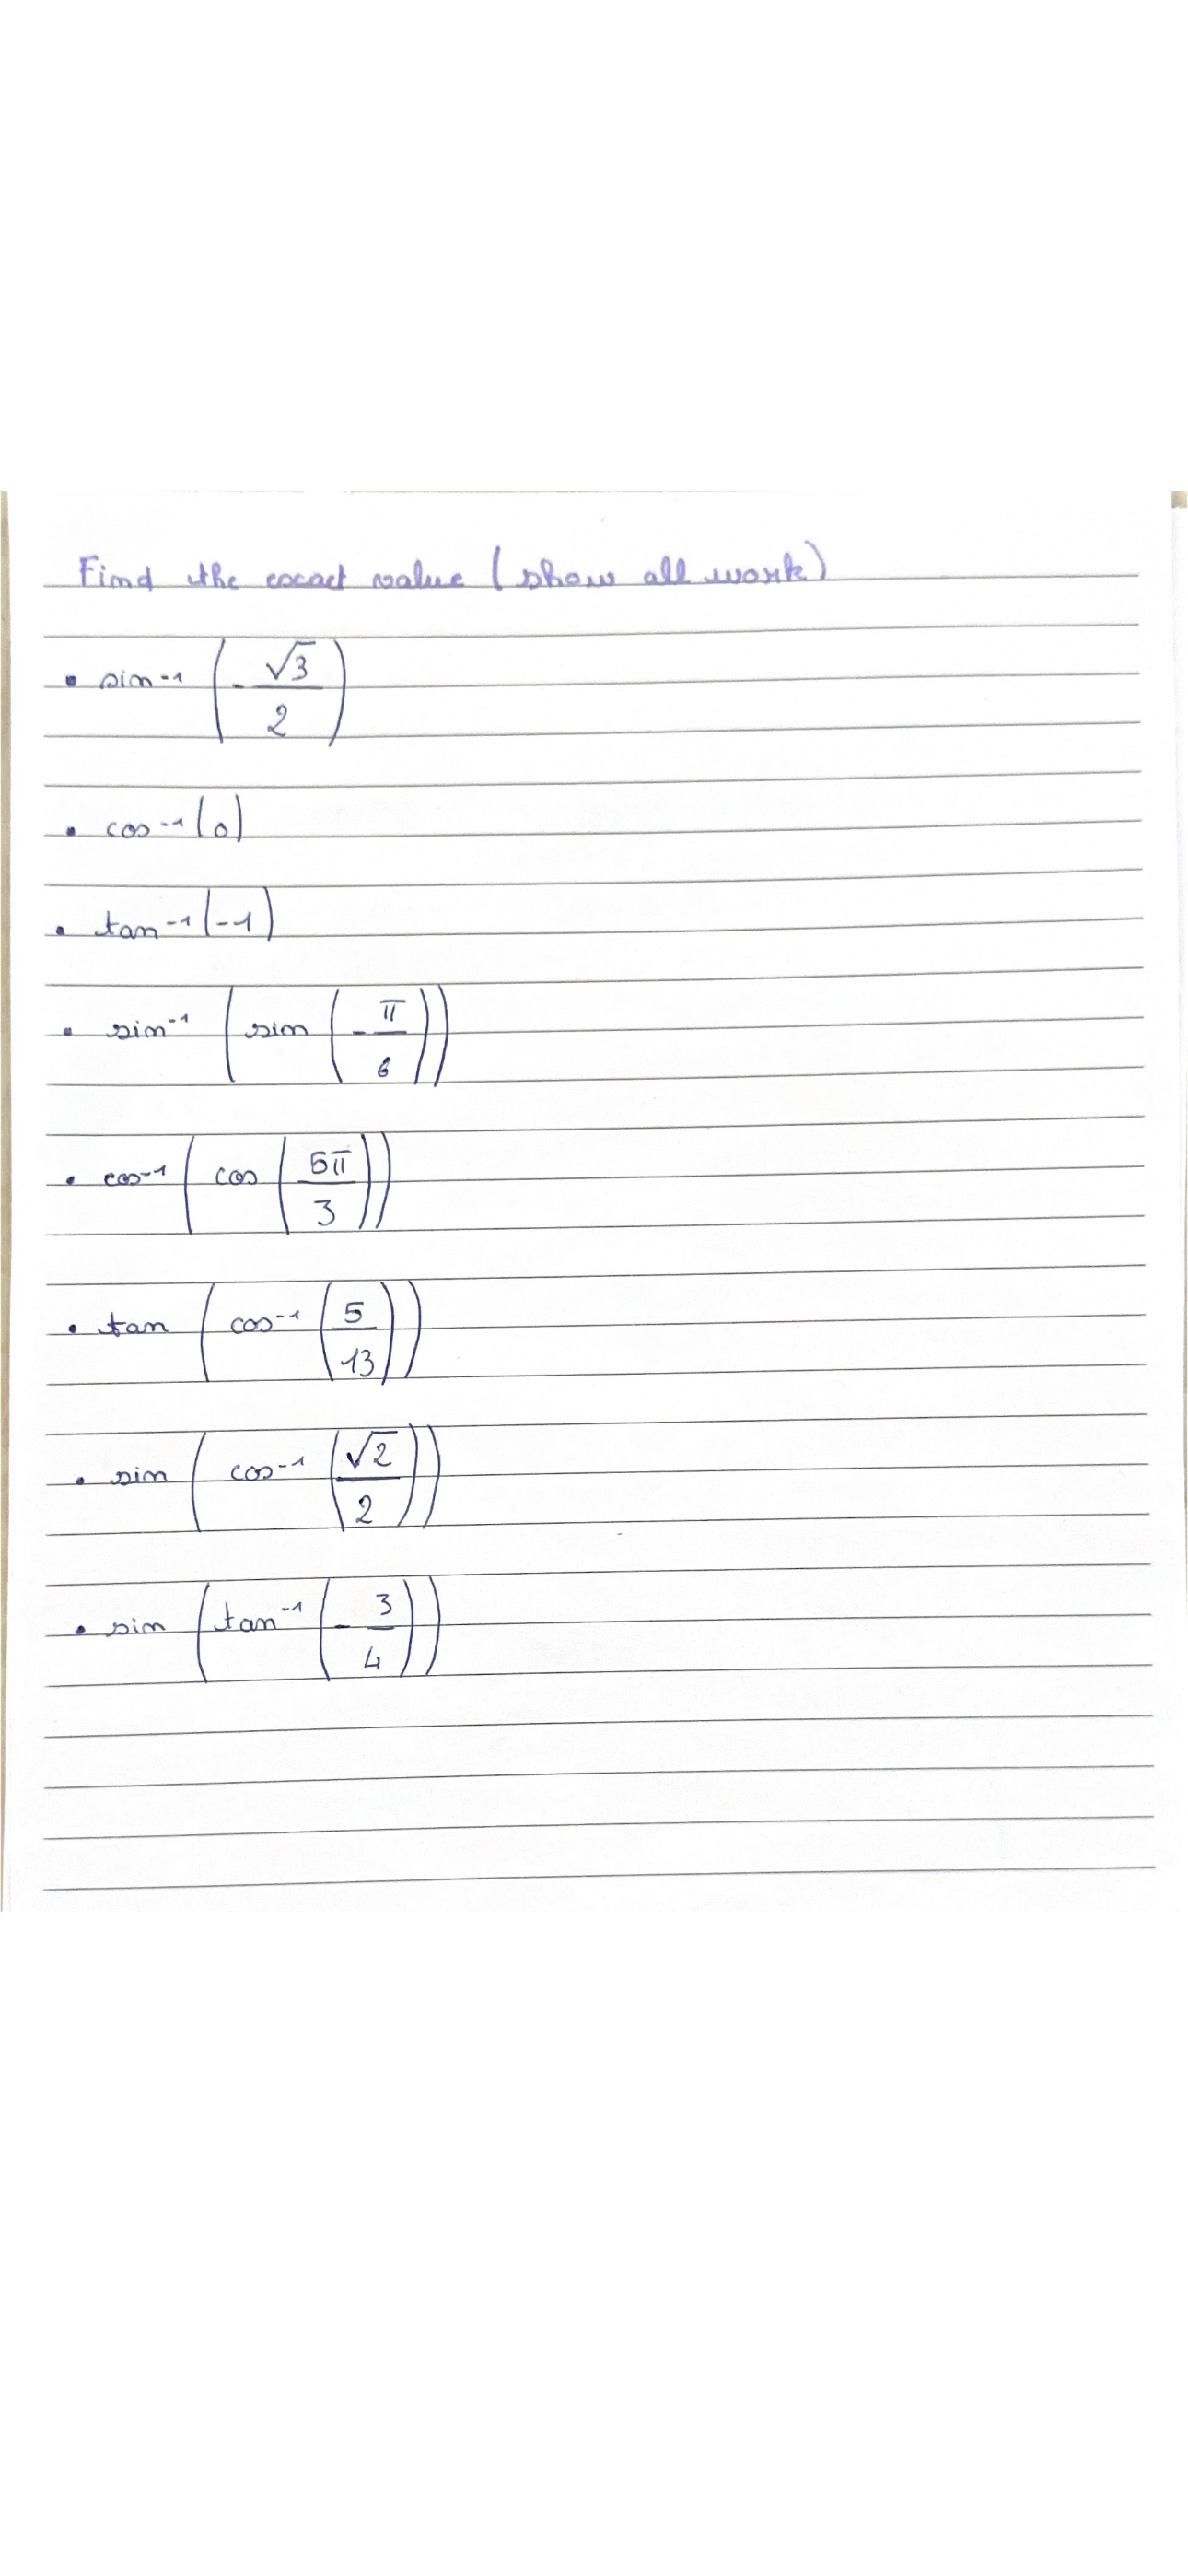 Find the exact value (show all work)
• sin⁻¹ (-√3/2)
• cos⁻¹(0)
• tan⁻¹(-1)
• sin⁻¹ (sin (-π/6))
• cos⁻¹ (cos (5π/3))
• tan (cos⁻¹ (5/13))
• sin (cos⁻¹ (√2/2))
• sin (tan⁻¹ (-3/4))